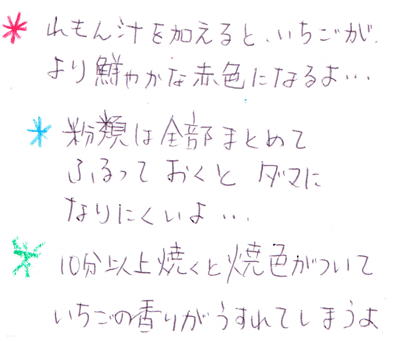 * れもん汁を加えると、いちごが、
より鮮やかな赤色になるよ…
* 粉類は全部まとめて
ふるっておくと ダマに
なりにくいよ…
* 10分以上焼くと焼色がついて
いちごの香りがうすれてしまうよ